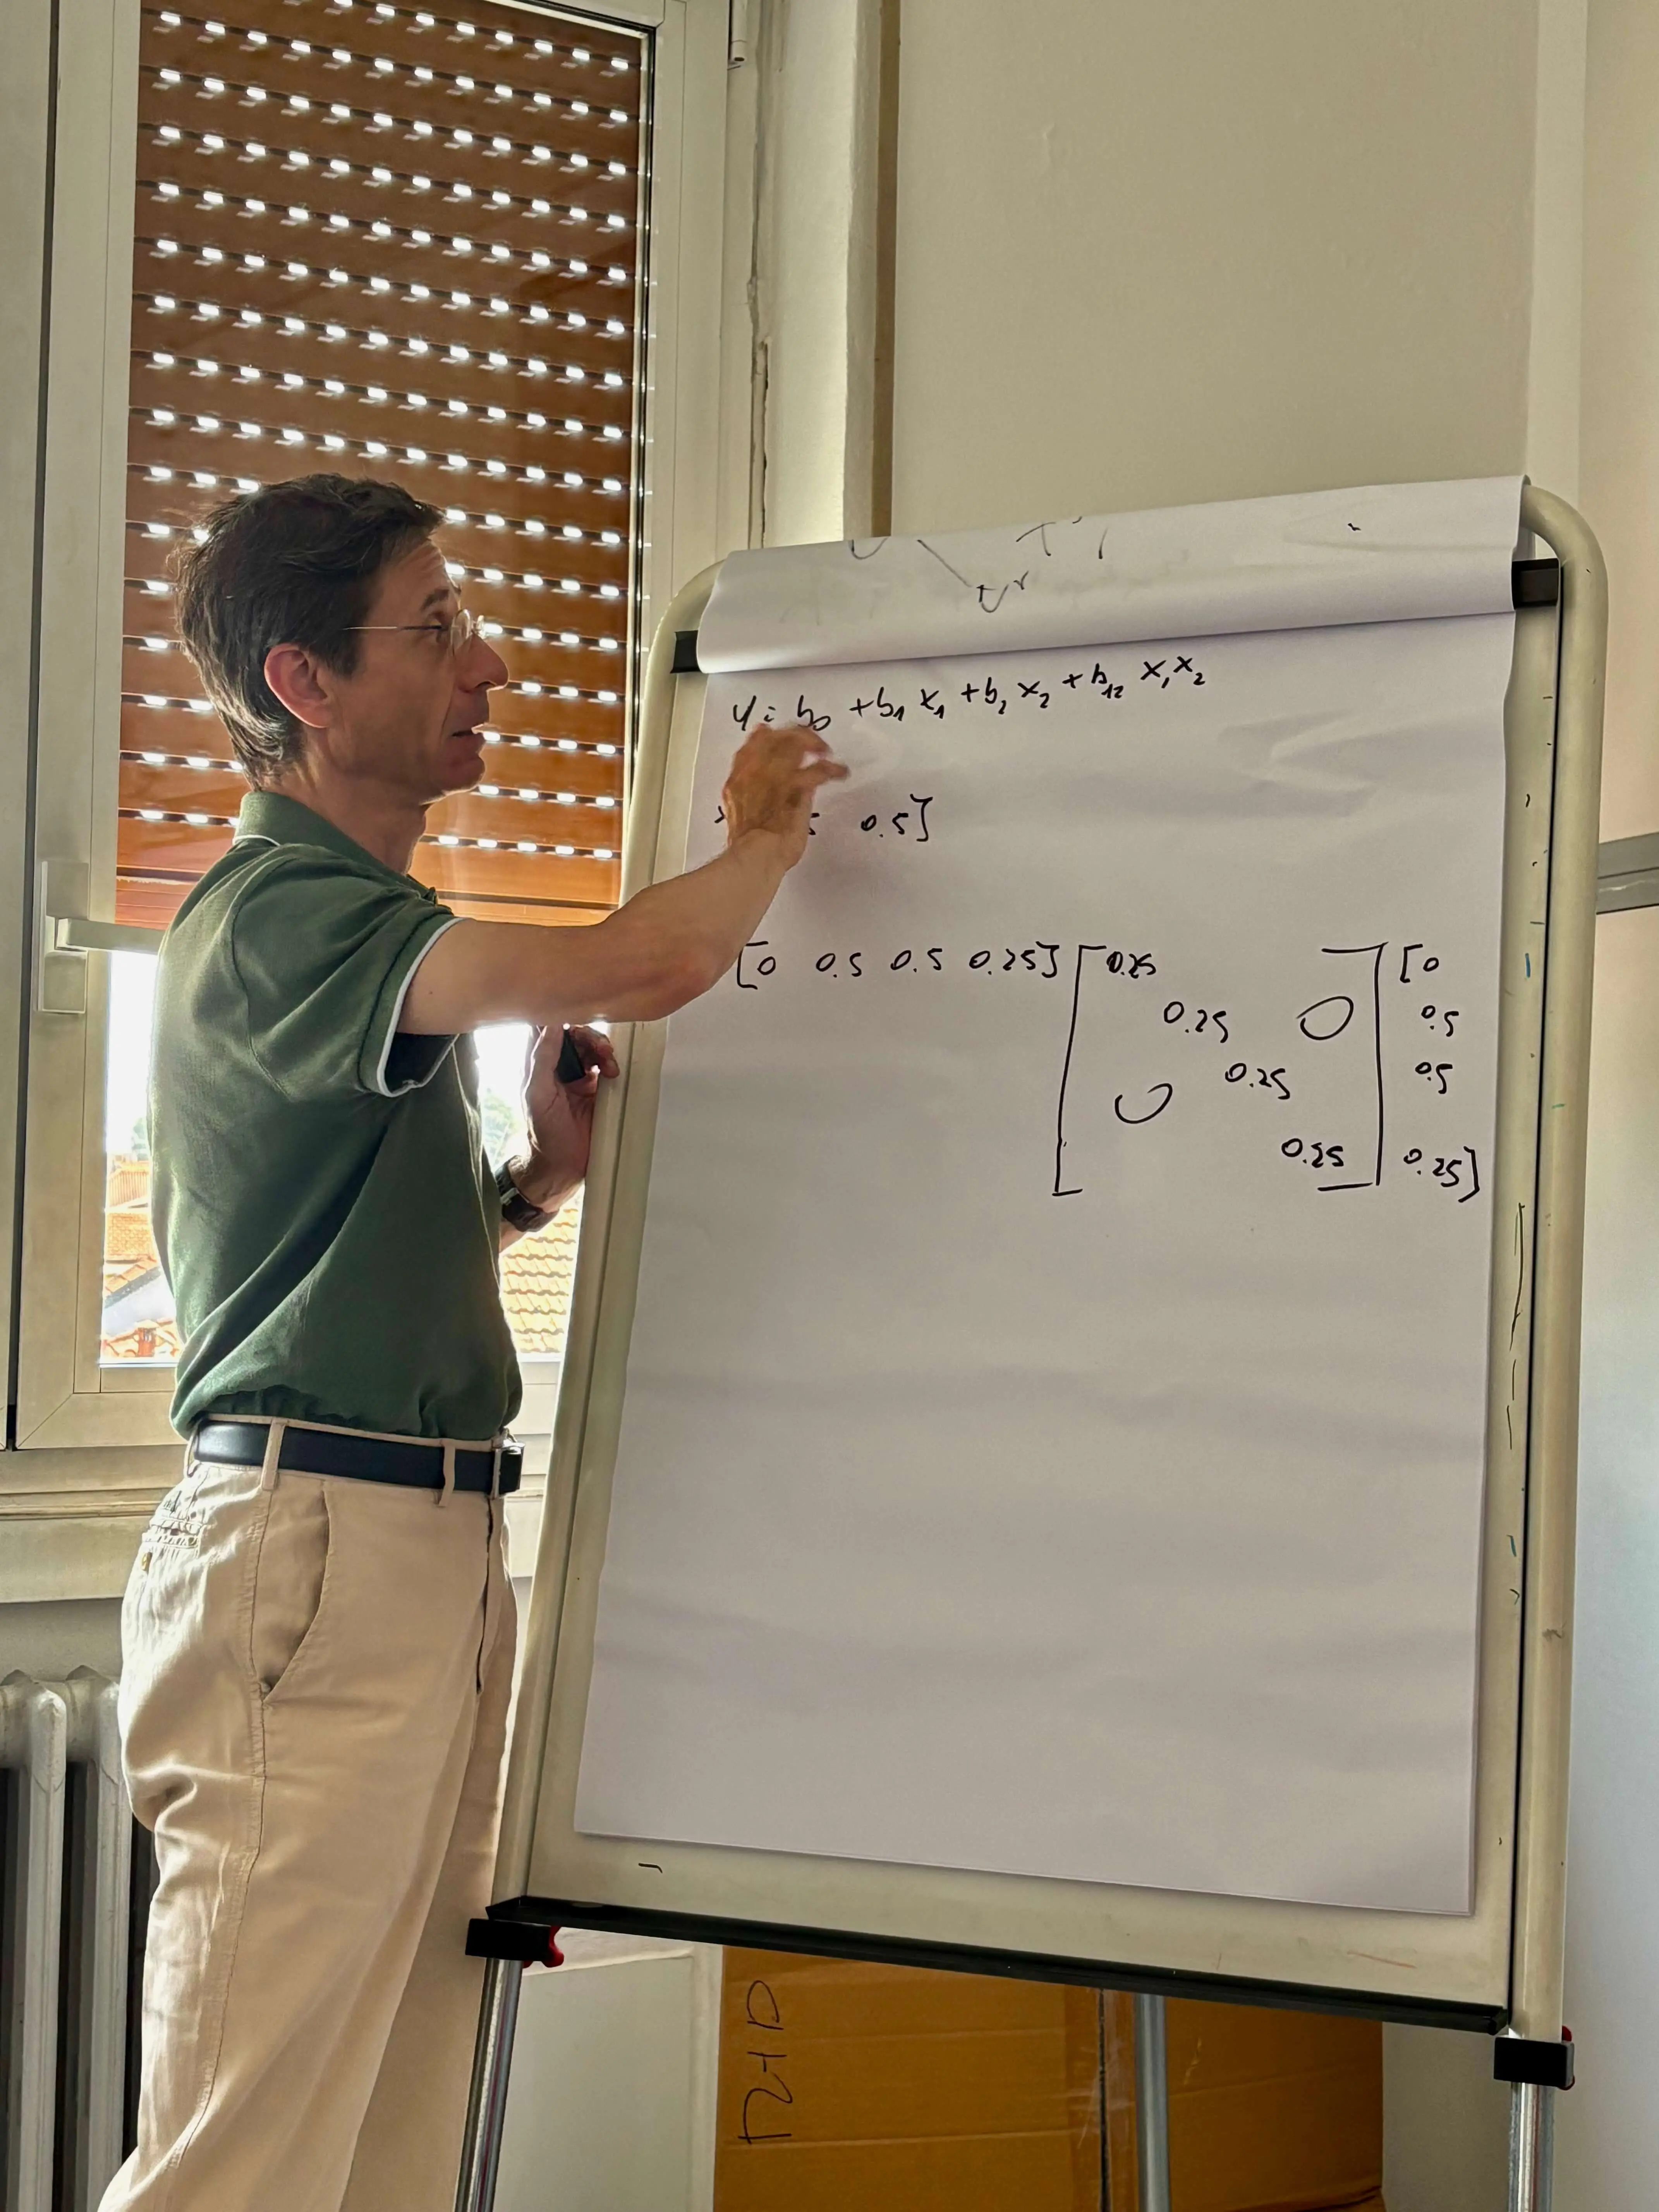 y = b0 + b1 x1 + b2 x2 + b12 x1 x2
0.5]
[0 0.5 0.5 0.25] [0.25 [0
0.25 0 0.5
0.25 0.5
0
0.25 ] 0.25]